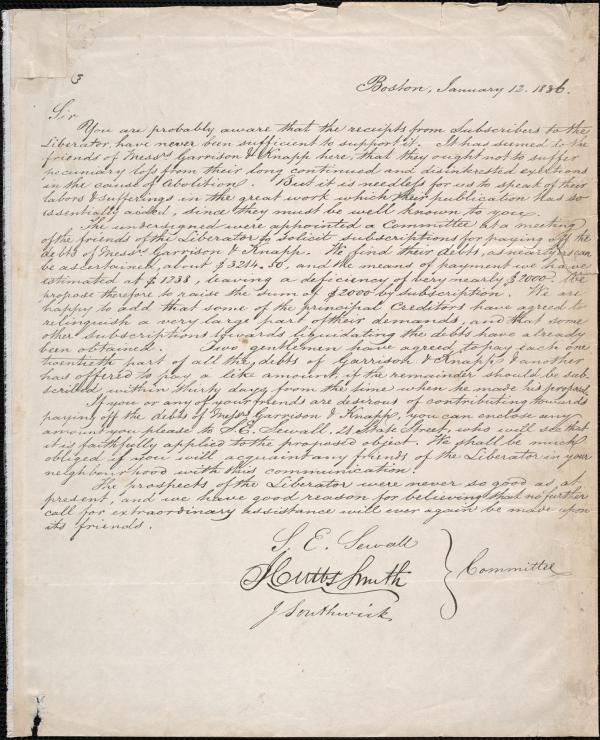 Boston, January 12. 1836.
Sir
You are probably aware that the receipts from Subscribers to the
Liberator, have never been sufficient to support it. It has seemed to the
friends of Mess.rs Garrison & Knapp here, that they ought not to suffer
pecuniary loss from their long continued and disinterested exertions
in the cause of Abolition. But it is needless for us to speak of their
labors & sufferings in the great work which their publication has so
essentially aided, since they must be well known to you.
The undersigned were appointed a Committee at a meeting
of the friends of the Liberator to solicit subscriptions for paying off the
debts of Mess.rs Garrison & Knapp. We find their debts, as nearly as can
be ascertained, about $3214.50, and the means of payment we have
estimated at $1238, leaving a deficiency of very nearly $2000. We
propose therefore to raise the sum of $2000 by subscription. We are
happy to add that some of the principal Creditors have agreed to
relinquish a very large part of their demands, and that some
other subscriptions towards liquidating the debts have already
been obtained. Two gentlemen have agreed to pay each one
twentieth part of all the debts of Garrison & Knapp & another
has offered to pay a like amount, if the remainder should be sub-
scribed within thirty days from the time when he made his proposal.
If you or any of your friends are desirous of contributing towards
paying off the debts of Mess.rs Garrison & Knapp, you can enclose any
amount you please to S.E. Sewall, State Street, who will see that
it is faithfully applied to the proposed object. We shall be much
obliged if you will acquaint any friends of the Liberator in your
neighbourhood with this communication.
The prospects of the Liberator were never so good as at
present, and we have good reason for believing that no further
call for extraordinary assistance will ever again be made upon
its friends.
S. E. Sewall
Smith
Committee
J Southwick